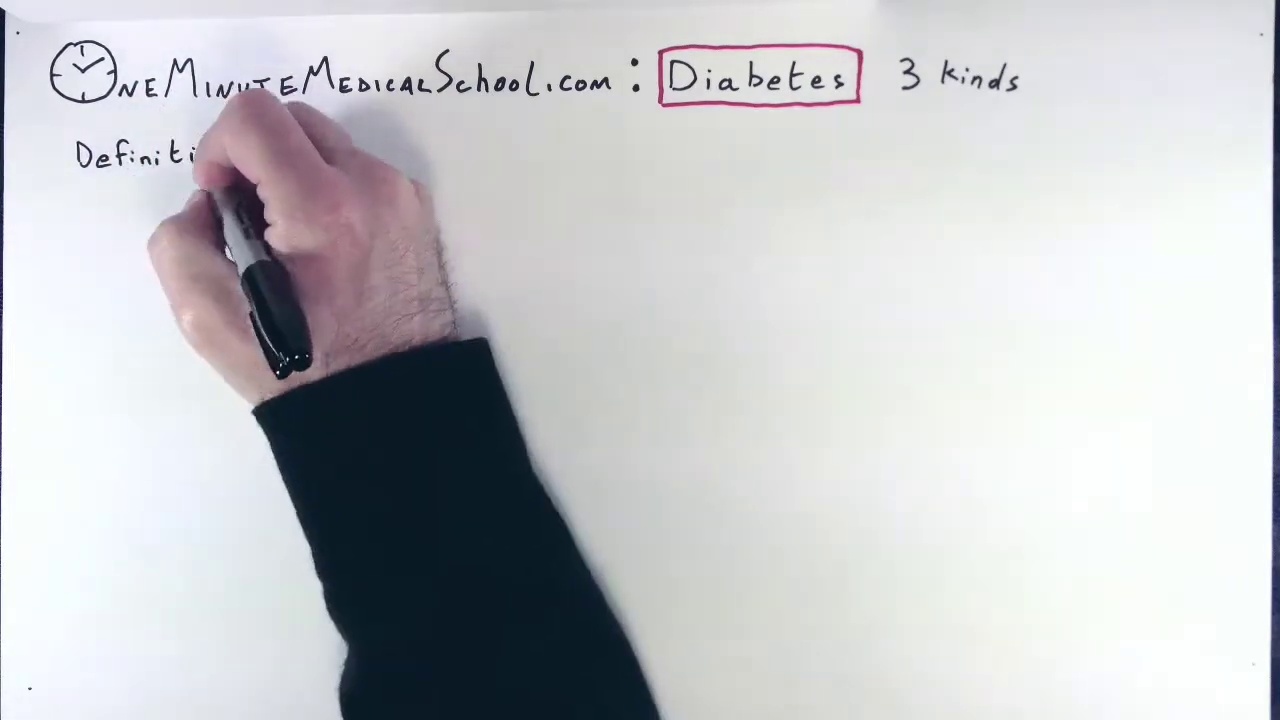 OneMinuteMedicalSchool.com : Diabetes 3 kinds
Definiti